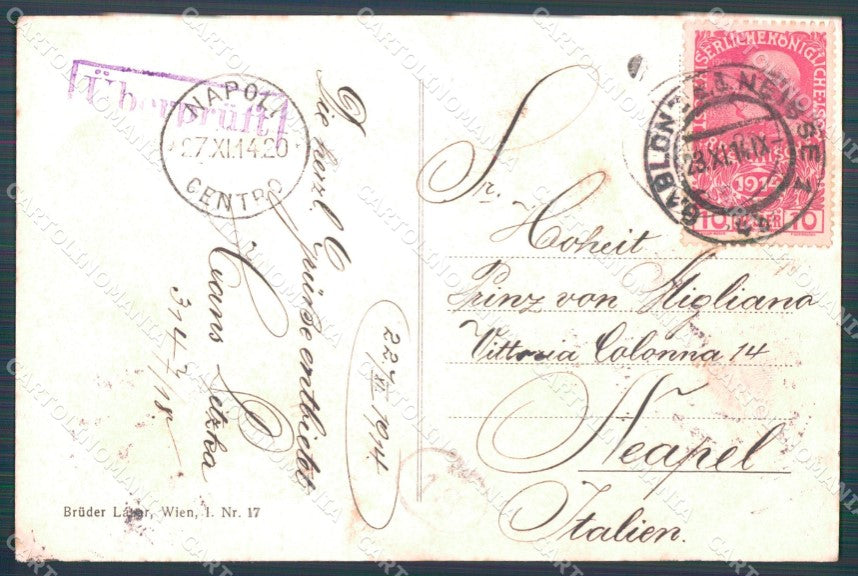 Überprüft
NAPOLI
27.XI.14.20
CENTRO
Die herzl. Grüsse entbietet
Hans Petzka
22/XI 1914
Brüder Lager, Wien, I. Nr. 17
GABLONZ A.D. NEISSE 1
23.XI.14.IX
1914
10 HELLER 10
Sr.
Hoheit
Prinz von Migliano
Vittoria Colonna 14
Neapel
Italien.
CARTOLINOMANIA